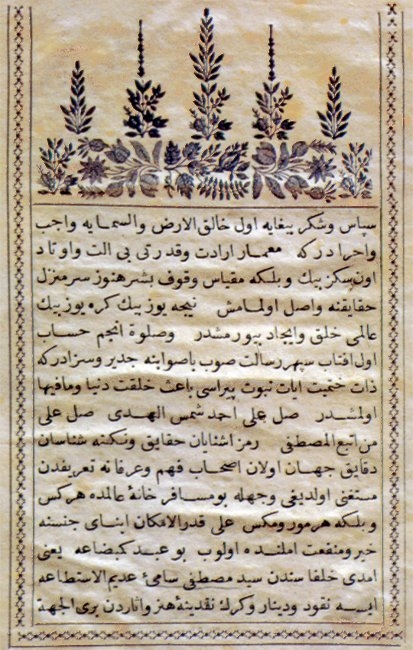 سپاس وشكر بيغايه اول خالق الارض والسمايه واجب
واحرا در كه معمار ارادت وقدرتى بى الت واوتاد
اون سكز بيك وبلكه مقياس وقوف بشر هنوز سرمنزل
حقايقنه واصل اولمامش نيجه يوز بيك كره يوز بيك
عالمى خلق وايجاد بيورمشدر وصلوة انجم حساب
اول افتاب سپهر رسالت صوب باصوابنه جدير وسزادركه
ذات ختميت ايات نبوت پيراسى باعث خلقت دنيا ومافيها
اولمشدر صل على احمد شمس الهدى صل على
من اتبع المصطفى رمز اشنايان حقايق ونكته شناسان
دقايق جهان اولان اصحاب فهم وعرفانه تعريفدن
مستغنى اولديغى وجهله بو مسافر خانۀ عالمده هركس
وبلكه هرمور ومكس على قدر الامكان ابناى جنسنه
خير ومنفعت املنده اولوب بو عبد كم بضاعه يعنى
امدى خلفا سندن سيد مصطفى سامئ عديم الاستطاعه
ايسه نقود ودينار وكرله نقدينۀ هنر واثاردن برى الجهة